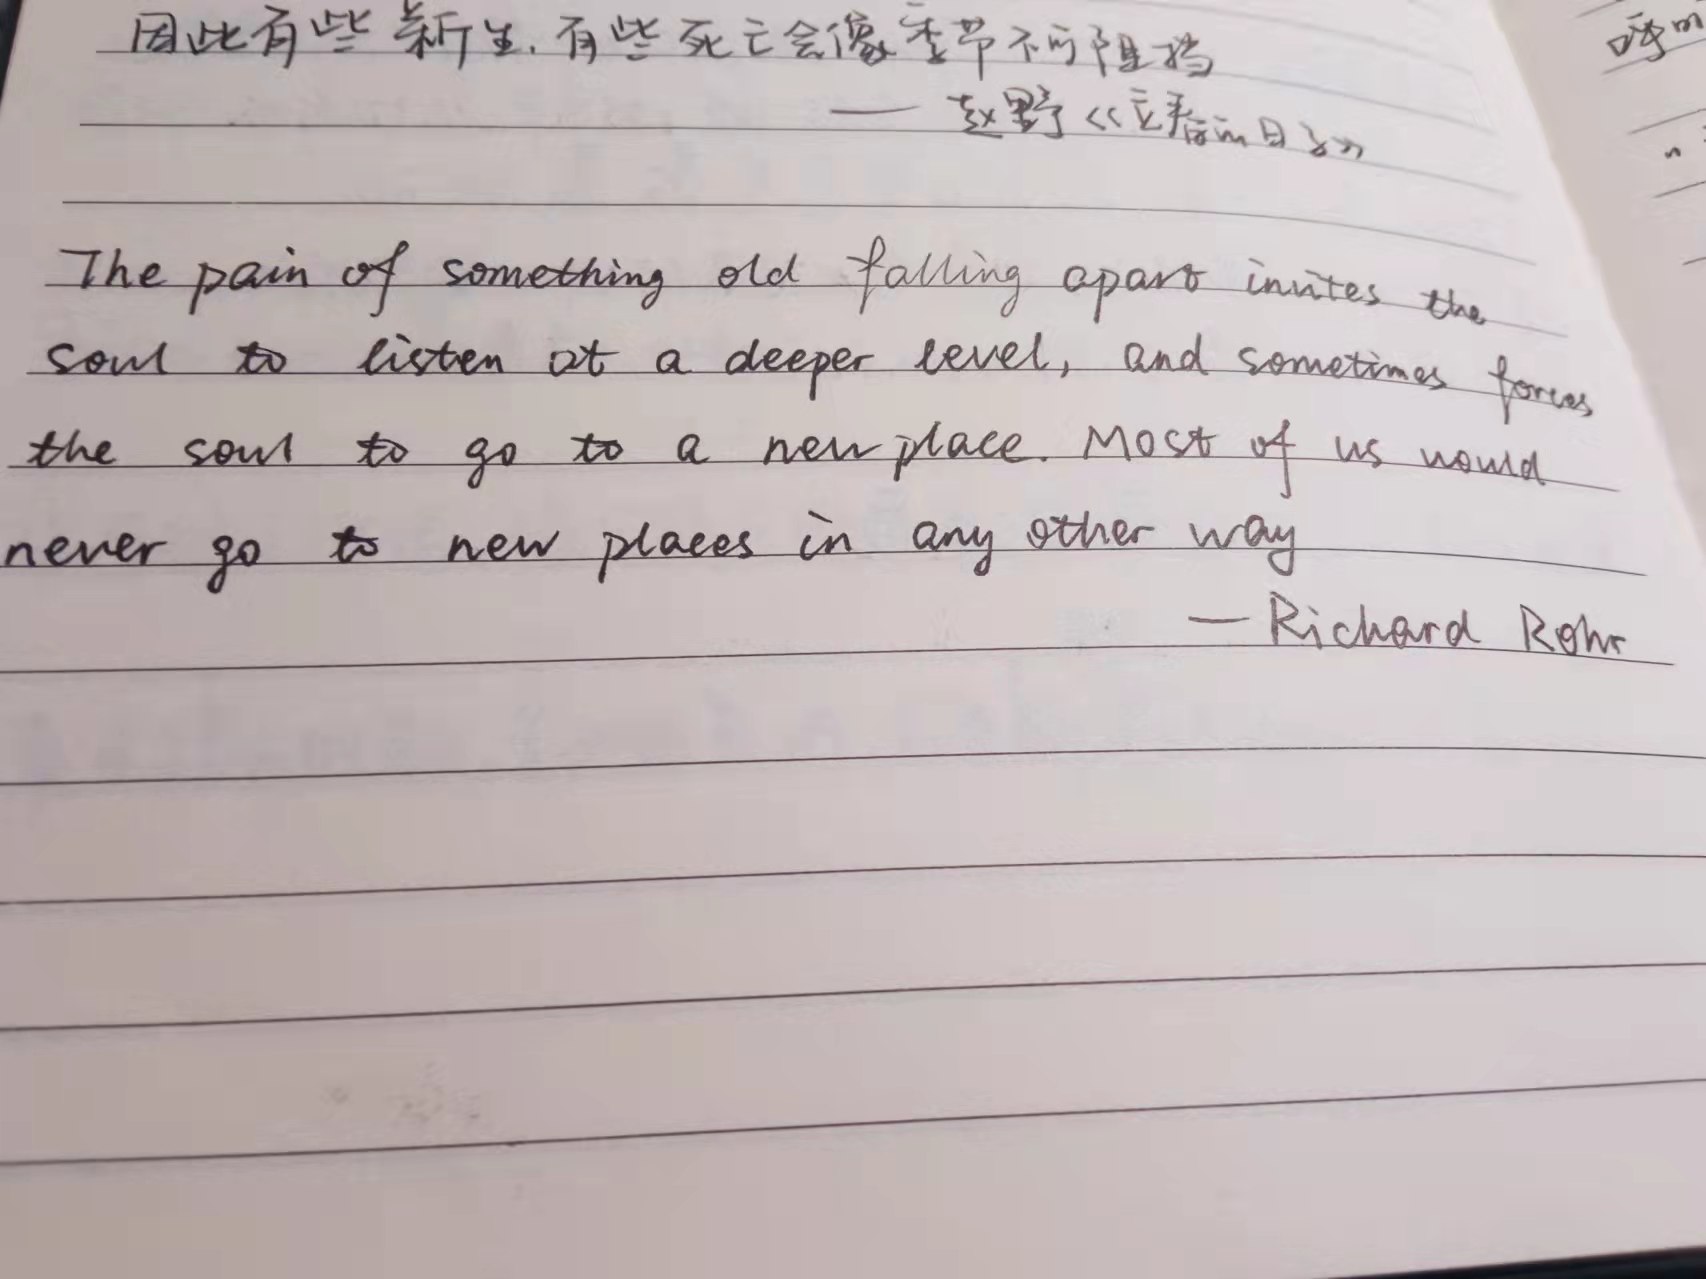 因此有些新生.有些死亡会像季节不可阻挡
— 赵野《立春的日子》
The pain of something old falling apart invites the
soul to listen at a deeper level, and sometimes forces
the soul to go to a new place. Most of us would
never go to new places in any other way
— Richard Rohr
呼叫